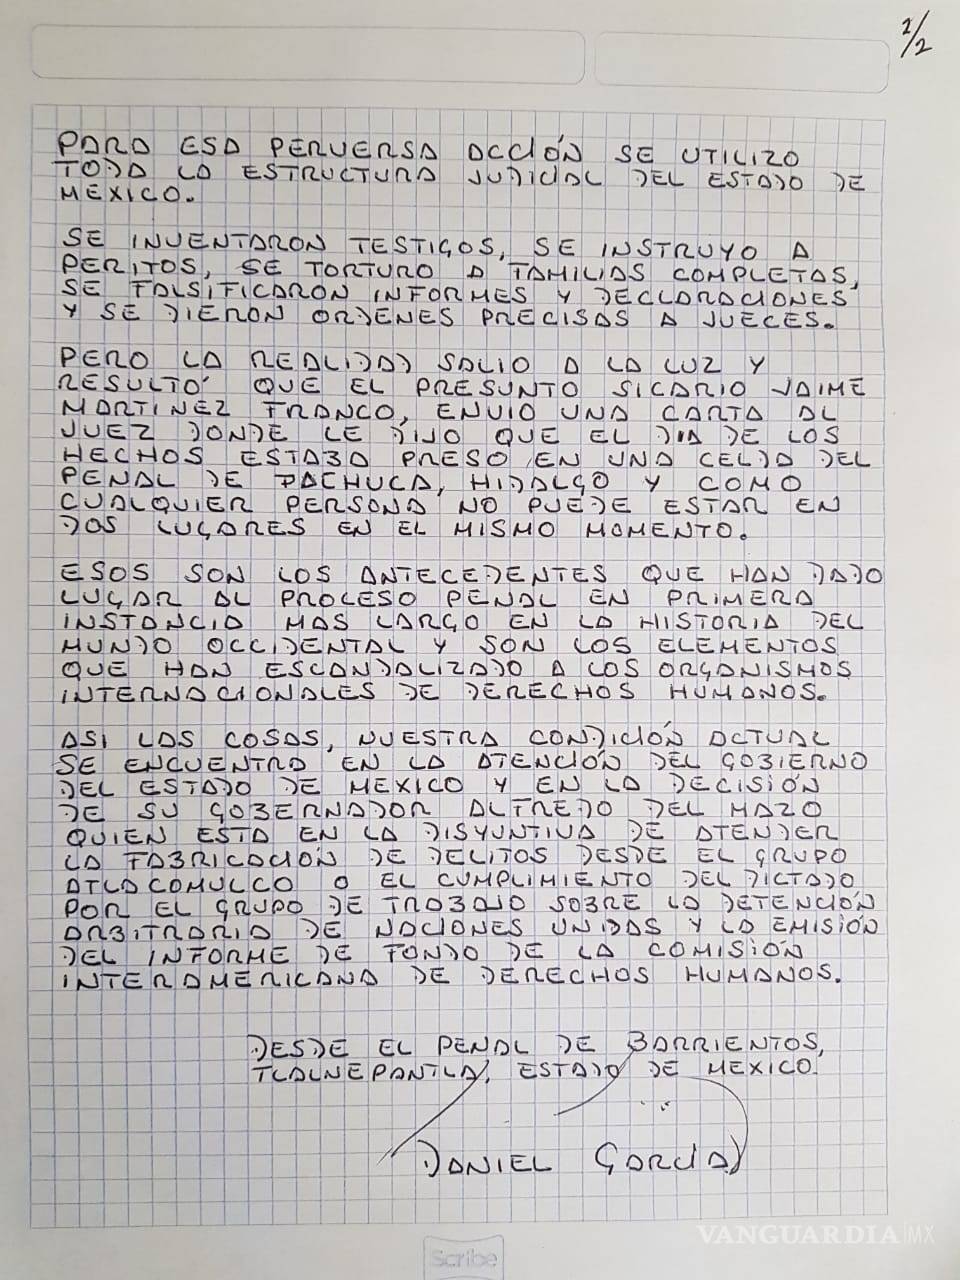 2/2
PARA ESA PERVERSA ACCIÓN SE UTILIZO
TODA LA ESTRUCTURA JUDICIAL DEL ESTADO DE
MEXICO.
SE INVENTARON TESTIGOS, SE INSTRUYO A
PERITOS, SE TORTURO A FAMILIAS COMPLETAS,
SE FALSIFICARON INFORMES Y DECLARACIONES
Y SE DIERON ORDENES PRECISAS A JUECES.
PERO LA REALIDAD SALIO A LA LUZ Y
RESULTÓ QUE EL PRESUNTO SICARIO JAIME
MARTINEZ FRANCO, ENVIO UNA CARTA AL
JUEZ DONDE LE DIJO QUE EL DIA DE LOS
HECHOS ESTABA PRESO EN UNA CELDA DEL
PENAL DE PACHUCA, HIDALGO Y COMO
CUALQUIER PERSONA NO PUEDE ESTAR EN
DOS LUGARES EN EL MISMO MOMENTO.
ESOS SON LOS ANTECEDENTES QUE HAN DADO
LUGAR AL PROCESO PENAL EN PRIMERA
INSTANCIA MAS LARGO EN LA HISTORIA DEL
MUNDO OCCIDENTAL Y SON LOS ELEMENTOS
QUE HAN ESCANDALIZADO A LOS ORGANISMOS
INTERNACIONALES DE DERECHOS HUMANOS.
ASI LAS COSAS, NUESTRA CONDICIÓN ACTUAL
SE ENCUENTRA EN LA ATENCIÓN DEL GOBIERNO
DEL ESTADO DE MEXICO Y EN LA DECISIÓN
DE SU GOBERNADOR ALFREDO DEL MAZO
QUIEN ESTA EN LA DISYUNTIVA DE ATENDER
LA FABRICACIÓN DE DELITOS DESDE EL GRUPO
ATLACOMULCO O EL CUMPLIMIENTO DEL DICTADO
POR EL GRUPO DE TRABAJO SOBRE LA DETENCIÓN
ARBITRARIA DE NACIONES UNIDAS Y LA EMISIÓN
DEL INFORME DE FONDO DE LA COMISIÓN
INTERAMERICANA DE DERECHOS HUMANOS.
DESDE EL PENAL DE BARRIENTOS,
TLALNEPANTLA, ESTADO DE MEXICO.
DANIEL GARCIA
VANGUARDIA MX
Scribe